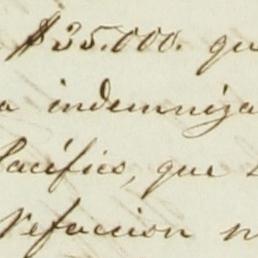 $35.000. qu
a indemniza
Pacífico, que
refaccion n